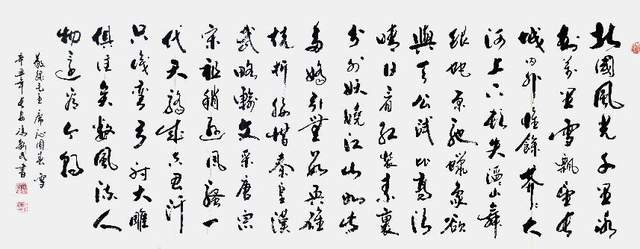 北國風光千里冰
封萬里雪飄望長
城内外惟餘莽々大
河上下頓失滔々山舞
銀蛇原馳蠟象欲
與天公試比高須
晴日看紅裝素裹
分外妖嬈江山如此
多嬌引無數英雄
競折腰惜秦皇漢
武略輸文采唐宗
宋祖稍遜風騷一
代天驕成吉思汗
只識彎弓射大雕
俱往矣數風流人
物還看今朝
敬録毛主席沁園春雪
辛丑年